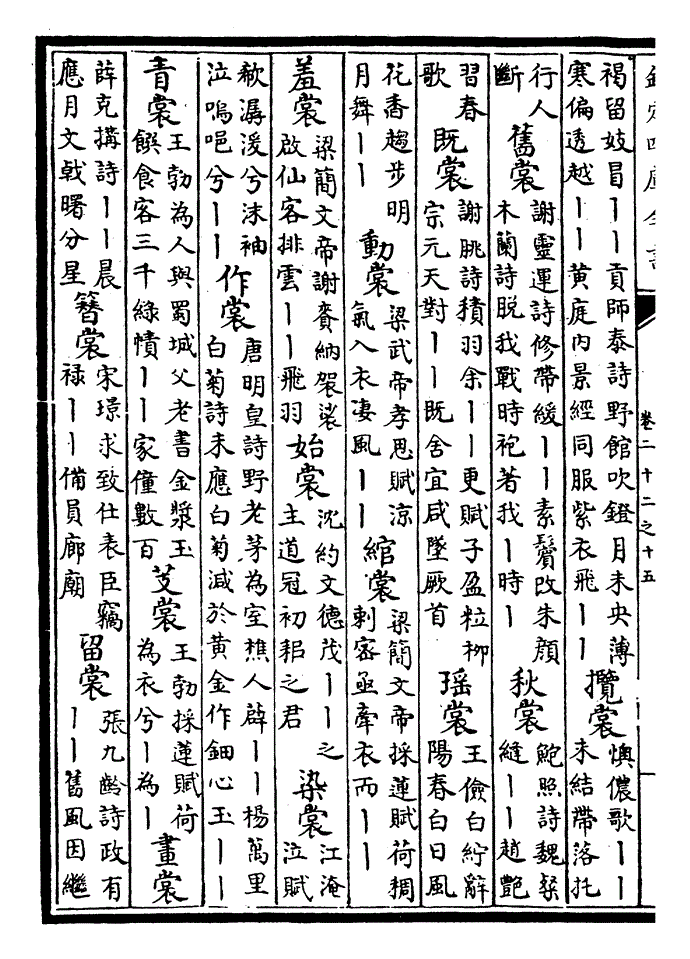 欽定四庫全書
卷二十二之十五
褐留妓冒丨丨貢師泰詩野館吹鐙月未央薄
寒偏透越丨丨黄庭内景經同服紫衣飛丨丨
攬裳
懊儂歌丨丨
未結帶落托
行人
斷
舊裳
謝靈運詩修帶緩丨丨素鬢改朱顔
木蘭詩脱我戰時袍著我丨時丨
秋裳
鮑照詩魏粲
縫丨丨趙艷
習春
歌
既裳
謝朓詩積羽余丨丨更賦子盈粒柳
宗元天對丨丨既舍宜咸墜厥首
瑶裳
王儉白紵辭
陽春白日風
花香趨步明
月舞丨丨
動裳
梁武帝孝思賦涼
氣入衣淒風丨丨
綰裳
梁簡文帝採蓮賦荷稠
刺宻亟牽衣而丨丨
羞裳
梁簡文帝謝賚納袈裟
啟仙客排雲丨丨飛羽
始裳
沈約文德茂丨丨之
主道冠初耜之君
染裳
江淹
泣賦
欷潺湲兮沫袖
泣嗚唈兮丨丨
作裳
唐明皇詩野老茅為室樵人薜丨丨楊萬里
白菊詩未應白菊減於黄金作鈿心玉丨丨
青裳
王勃為人與蜀城父老書金漿玉
饌食客三千綠幘丨丨家僮數百
芰裳
王勃採蓮賦荷
為衣兮丨為丨
畫裳
薛克搆詩丨丨晨
應月文戟曙分星
簪裳
宋璟求致仕表臣竊
禄丨丨備員廊廟
留裳
張九齡詩政有
丨丨舊風因繼